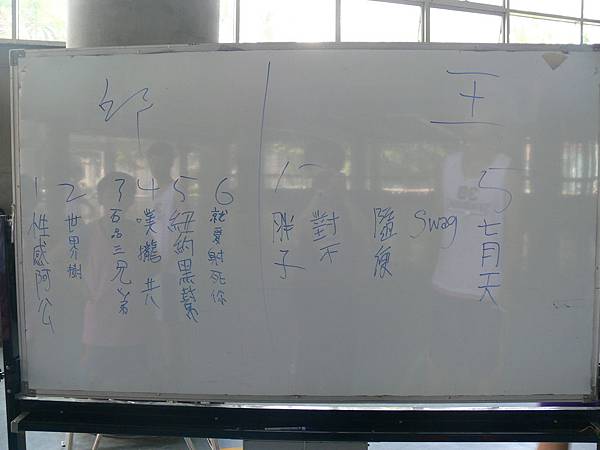 邱
1 性感阿公
2 世界樹
3 石品三兄弟
4 噗攏共
5 紐約黑幫
6 就愛射死你
王
1 胖子
對不
隨便
Swag
5 七月天